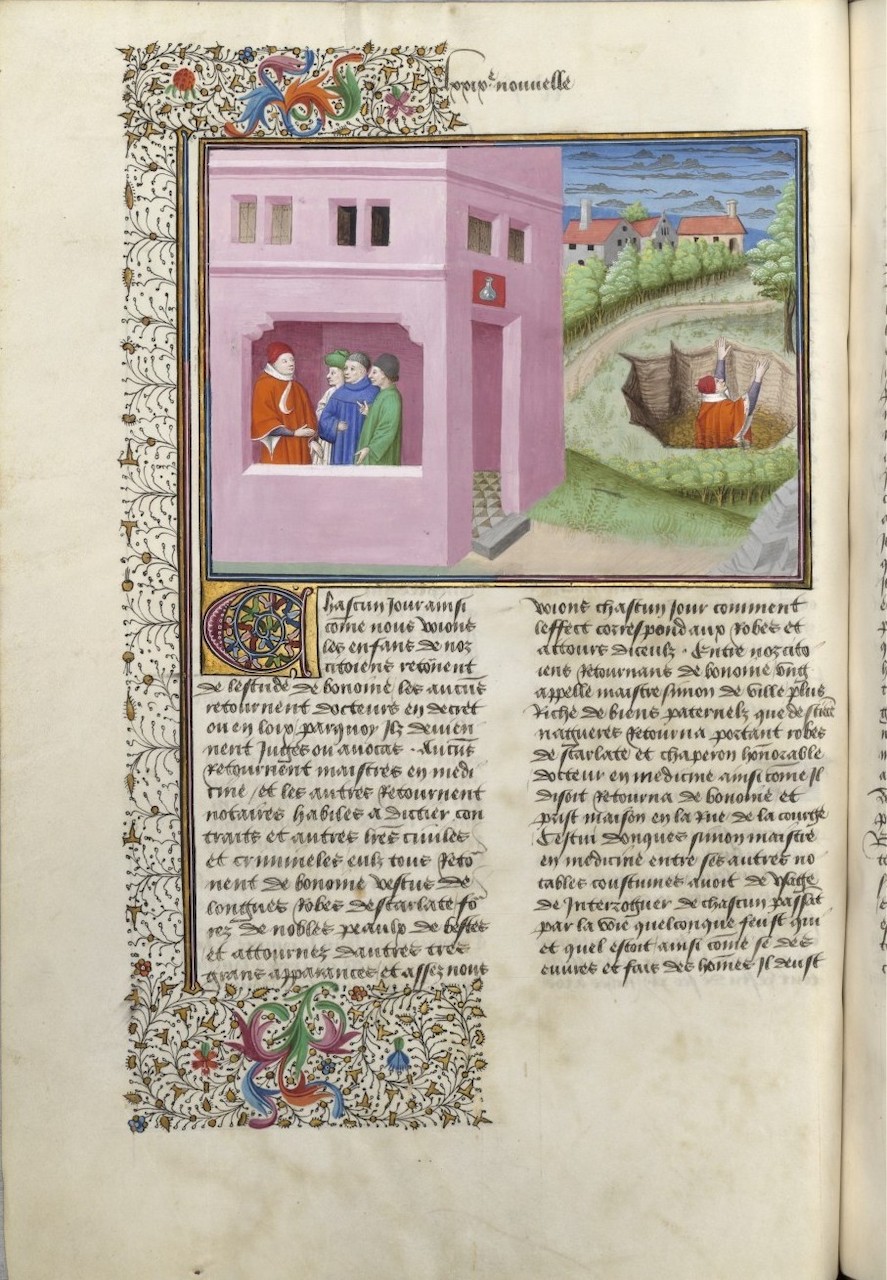 lxxix.e nouuelle
Chascun Jour ainsi
come nous voions
les enfans de noz
citoiens retournent
de lestude de bonoine les aucūs
retournent docteurs en decret
ou en loix parquoy Ilz deuien
nent Juges ou auocas. Aucūs
Retournēt maistres en medi
cine / et les autres Retournent
notaires habiles a dictier con
tracts et autres lrēs ciuiles
et crimineles eulx tous Retō
nent de bonoine vestus de
longues Robes descarlate fō
rez de nobles peaulx de bestes
et attournez dautres tres
grans apparances et assez nous
voions chascun jour comment
leffect correspond aux Robes et
attours diceulx. Entre noz cito
iens Retournans de bonoine vng
appelle maistre simon de ville plus
Riche de biens paternelz que de sciēce
nagueres Retourna portant robes
descarlate et chaperon hōnorable
docteur en medicine ainsi come Il
disoit Retourna de bonoine et
prist maison en la Rue de la courge
Cestui donques simon maistre
en medicine entre ses autres no
tables coustumes auoit de vsage
de Interroguer de chascun passāt
par la voie quelconque feust qui
et quel estoit ainsi come se des
euures et fais des hōmes Il deust